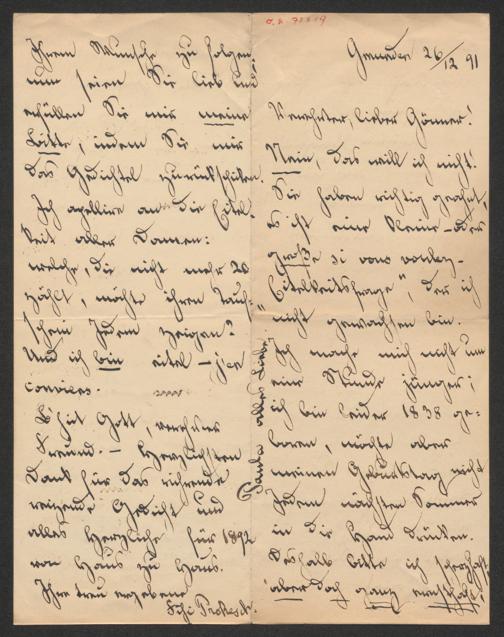 Gmunden 26/12 91
Verehrter, lieber Gönner!
Nein, das will ich nicht!
Sie haben richtig geahnt,
es ist eine kleine – oder
große si vous voulez –
"Eitelkeitsfrage", der ich
nicht gewachsen bin.
Ich mache mich nicht um
eine Stunde jünger;
ich bin leider 1838 ge-
boren, möchte aber
meinen Geburtstag nicht
Jedem nächsten Sommer
in die Hand drücken.
Deshalb bitte ich scherzhaft
aber doch ganz ernsthaft:
Ihrem Wunsche zu folgen
nun seien Sie lieb und
erfüllen Sie mir meine
Bitte, indem Sie mir
das Gedichtel zurückschicken.
Ich apellire an die Eitel-
keit aller Damen:
welche, die nicht mehr 20
zählt, möchte ihren Tauf-
schein Jedem zeigen?
Und ich bin eitel – j'en
conviens.
B'hüt Gott, verehrter
Freund. – Herzlichsten
Dank für das rührende
reizende Gedicht und
alles Herzliche für 1892
von Haus zu Haus.
Ihre treu ergebene
Prokesch.
Paula alles Liebe